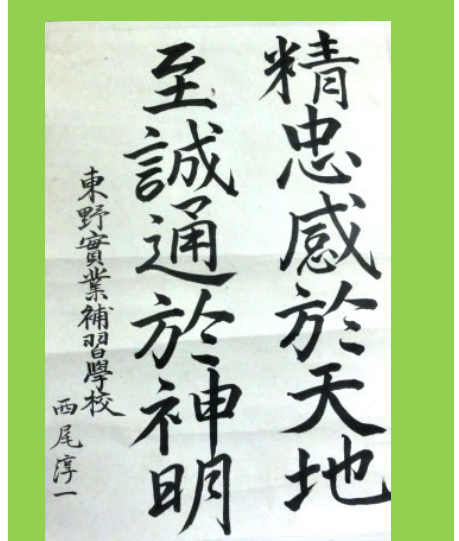 精忠感於天地
至誠通於神明
東野實業補習學校
西尾淳一